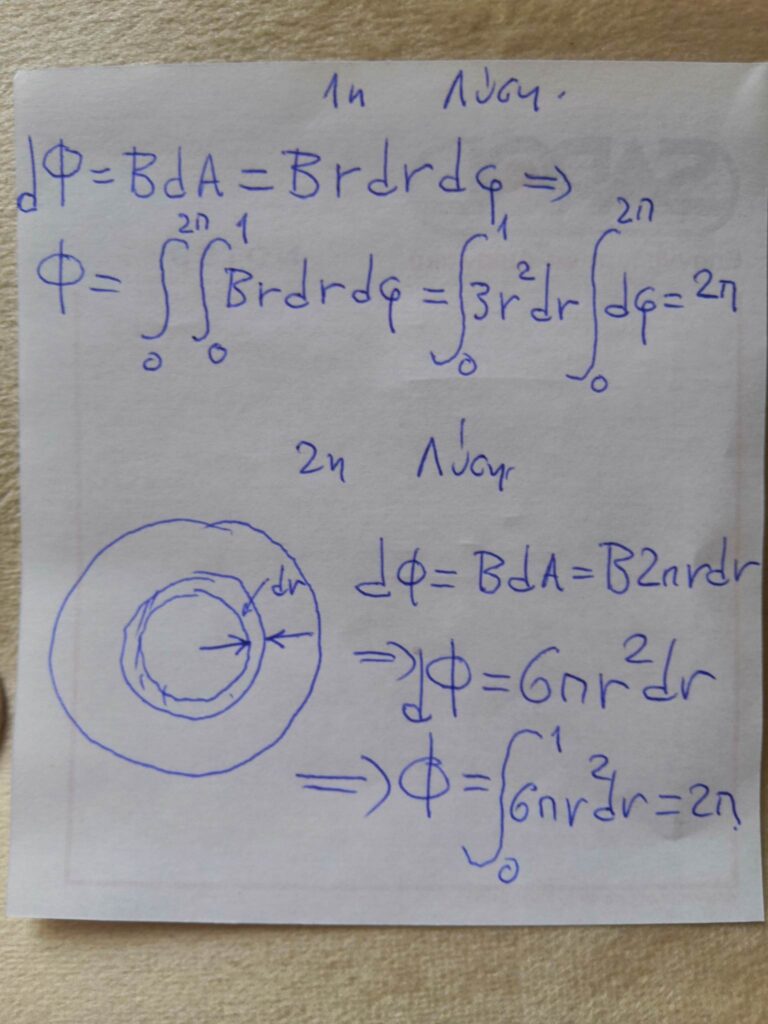 1η Λύση.
dΦ = BdA = Brdrdφ ⇒
Φ = ∫₀²π ∫₀¹ Brdrdφ = ∫₀¹ 3r²dr ∫₀²π dφ = 2π
2η Λύση
dΦ = BdA = B2πrdr
dr
⇒ dΦ = 6πr²dr
⇒ Φ = ∫₀¹ 6πr²dr = 2π.